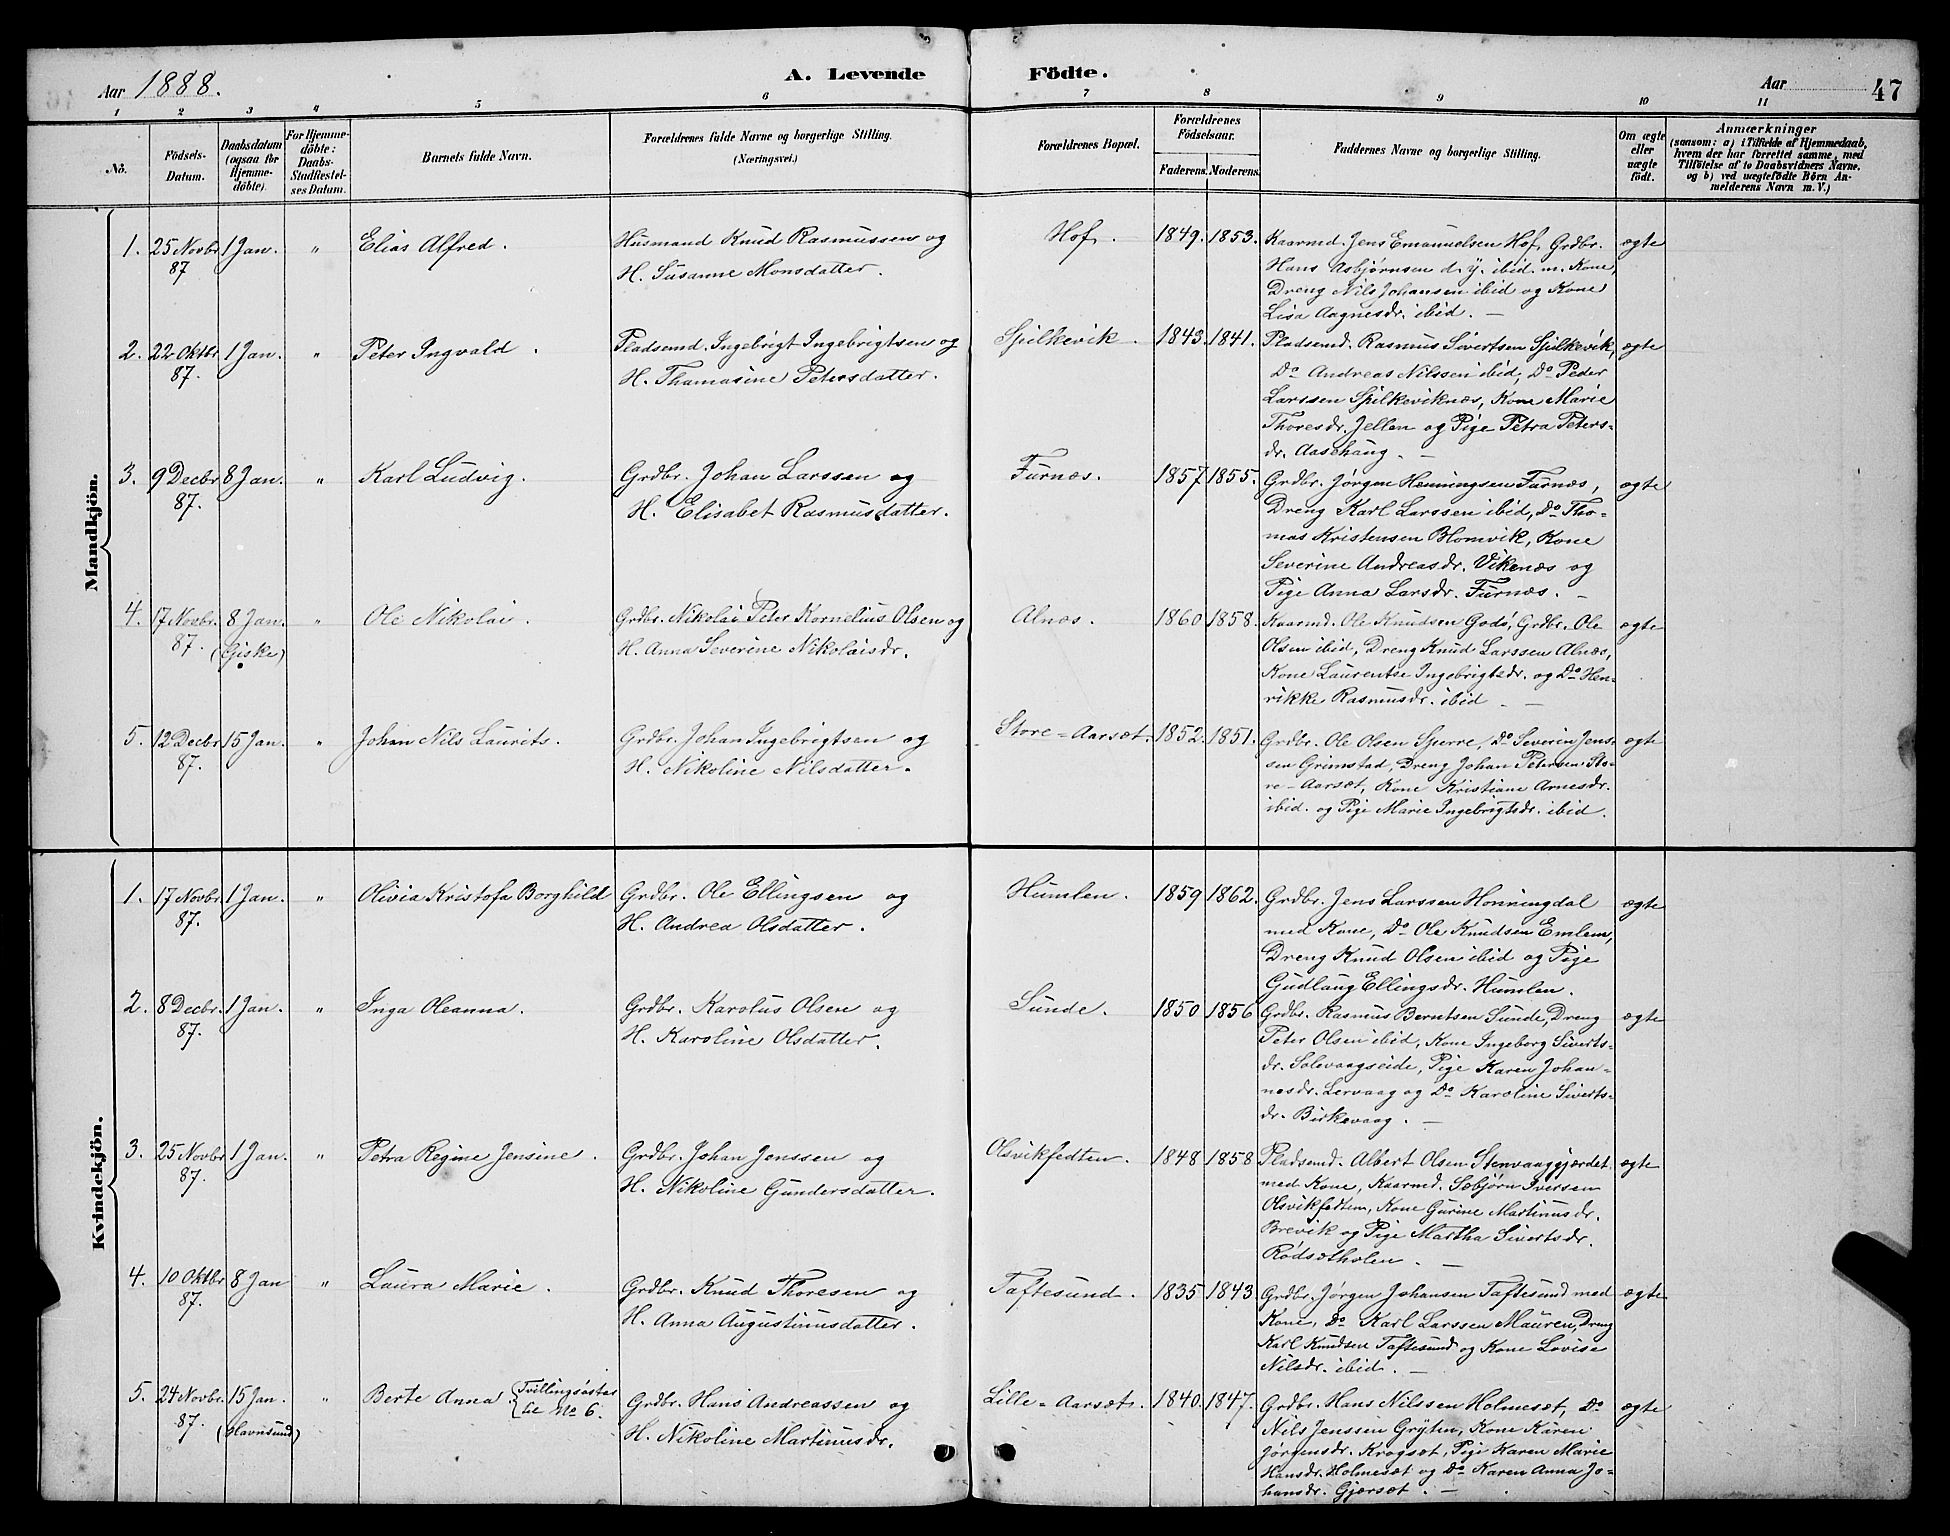 Aar 1888.
A. Levende Födte.
Aar
47
1 2 3 4 5 6 7 8 9 10 11
No.
Födsels-
Datum.
Daabsdatum
(ogsaa for
Hjemme-
döbte).
For Hjemme-
döbte:
Daabs-
Stadfæstel-
ses Datum.
Barnets fulde Navn.
Forældrenes fulde Navne og borgerlige Stilling.
(Næringsvei.)
Forældrenes Bopæl.
Forældrenes
Födselsaar.
Faderens. Moderens.
Faddernes Navne og borgerlige Stilling.
Om ægte
eller
uægte
födt.
Anmærkninger
(saasom: a) i Tilfælde af Hjemmedaab,
hvem der har forrettet samme, med
Tilföielse af to Daabsvidners Navne.
og b) ved uægtefödte Börn An-
melderens Navn m. V.)
Mandkjön.
1. 25 Novbr. 87 1 Jan. " Elias Alfred.
Husmand Knud Rasmussen og
H. Susanne Monsdatter.
Hof. 1849. 1853.
Kaarmd. Jens Emanuelsen Hof, Grdbr.
Hans Asbjørnsen d. y. ibid. m. Kone,
Dreng Nils Johansen ibid og Kone
Lisa Aagnesdr. ibid. —
ægte
2. 22 Oktbr. 87. 1 Jan. " Peter Ingvald.
Pladsemd. Ingebrigt Ingebrigtsen og
H. Thomasine Petersdatter.
Spilkevik. 1843. 1841.
Pladsemd. Rasmus Sivertsen Spilkevik,
Do Andreas Nilssen ibid, Do Peder
Larssen Spilkeviknæs, Kone Marie
Thoresdr. Jellen og Pige Petra Peters-
dr. Aasehaug. —
ægte
3. 9 Decbr. 87. 8 Jan. " Karl Ludvig.
Grdbr. Johan Larssen og
H. Elisabet Rasmusdatter.
Furnæs. 1857 1855.
Grdbr. Jørgen Henningsen Furnæs,
Dreng Karl Larssen ibid, Do Tho-
mas Kristensen Blomvik, Kone
Severine Andreasdr. Vikenæs og
Pige Anna Larsdr. Furnæs. —
ægte
4. 17 Novbr. 87. 8 Jan. (Giske) " Ole Nikolai.
Grdbr. Nikolai Peter Kornelius Olsen og
H. Anna Severine Nikolaisdr.
Alnæs. 1860 1858.
Kaarmd. Ole Knudsen Godö, Grdbr. Ole
Olsen ibid, Dreng Knud Larssen Alnæs,
Kone Laurentse Ingebrigtsdr. og Do Hen-
rikke Rasmusdr. ibid —
ægte
5. 12 Decbr. 87. 15 Jan. " Johan Nils Laurits.
Grdbr. Johan Ingebrigtsen og
H. Nikoline Nilsdatter.
Store=Aarsæt. 1852. 1851.
Grdbr. Ole Olsen Spurre, Do Severin Jens-
sen Grimstad, Dreng Johan Petersen Sto-
re-Aarsæt, Kone Kristiane Arnesdr.
ibid. og Pige Marie Ingebrigtsdr. ibid.
ægte
Kvindekjön.
1. 17 Novbr. 87. 1 Jan. " Olivia Kristofa Borghild
Grdbr. Ole Ellingsen og
H. Andrea Olsdatter.
Humlen. 1859 1862.
Grdbr. Jens Larssen Honningdal
med Kone, Do Ole Knudsen Emlem,
Dreng Knud Olsen ibid og Pige
Gudlaug Ellingsdr. Humlen.
ægte
2. 8 Decbr. 87. 1 Jan. " Inga Oleanna.
Grdbr. Karolus Olsen og
H. Karoline Olsdatter.
Sunde. 1850 1856
Grdbr. Rasmus Berntsen Sunde, Dreng
Peter Olsen ibid, Kone Ingeborg Siverts-
dr. Solevaagseide, Pige Karen Johan-
nesdr. Lervaag og Do Karoline Siverts-
dr. Birkevaag. —
ægte
3. 25 Novbr. 87. 1 Jan. " Petra Regine Jensine.
Grdbr. Johan Jonssen og
H. Nikoline Gundersdatter.
Olsvikfedten. 1848 1858
Pladsemd. Albert Olsen Stenvaaggjærdet
med Kone, Kaarmd. Sæbjørn Iversen
Olsvikfedten, Kone Gurine Martinusdr.
Brevik og Pige Martha Sivertsdr.
Rödsætholen. —
ægte
4. 10 Oktbr. 87. 8 Jan " Laura Marie.
Grdbr. Knud Thoresen og
H. Anna Augustinusdatter.
Taftesund. 1835 1843
Grdbr. Jørgen Johansen Taftesund med
Kone, Do Karl Larssen Mauren, Dreng
Karl Knudsen Taftesund og Kone Lovise
Nilsdr. ibid. —
ægte
5. 24 Novbr. 87. 15 Jan. (Havnsund) " Berte Anna. (Tvillingsöster
til No 6.
Grdbr. Hans Andreassen og
H. Nikoline Martinusdr.
Lille=Aarsæt. 1840. 1847.
Grdbr. Hans Nilssen Holmesæt, Do
Nils Jenssen Grÿten, Kone Karen
Jørgensdr. Krogsæt, Pige Karen Marie
Hansdr. Holmesæt og Do Karen Anna Jo-
hansdr. Gjærsæt. —
ægte